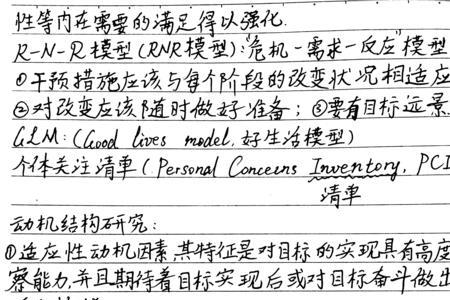 性等内在需要的满足得以强化.
R-N-R模型(RNR模型):"危机-需求-反应"模型
①干预措施应该与每个阶段的改变状况相适应
②对改变应该随时做好准备；③要有目标远景.
GLM:(Good lives model,好生活模型)
个体关注清单(Personal Concerns Inventory, PCI
清单
动机结构研究：
①适应性动机因素,其特征是对目标的实现具有高度
察能力,并且期待着目标实现后或对目标奋斗做出